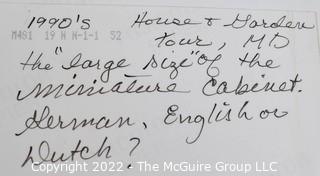 1990's House & Garden
M481 19 N N-1-1 52
Tour, MD
the "large size" of the
Miniature Cabinet.
German, English or
Dutch?
Copyright 2022 - The McGuire Group LLC